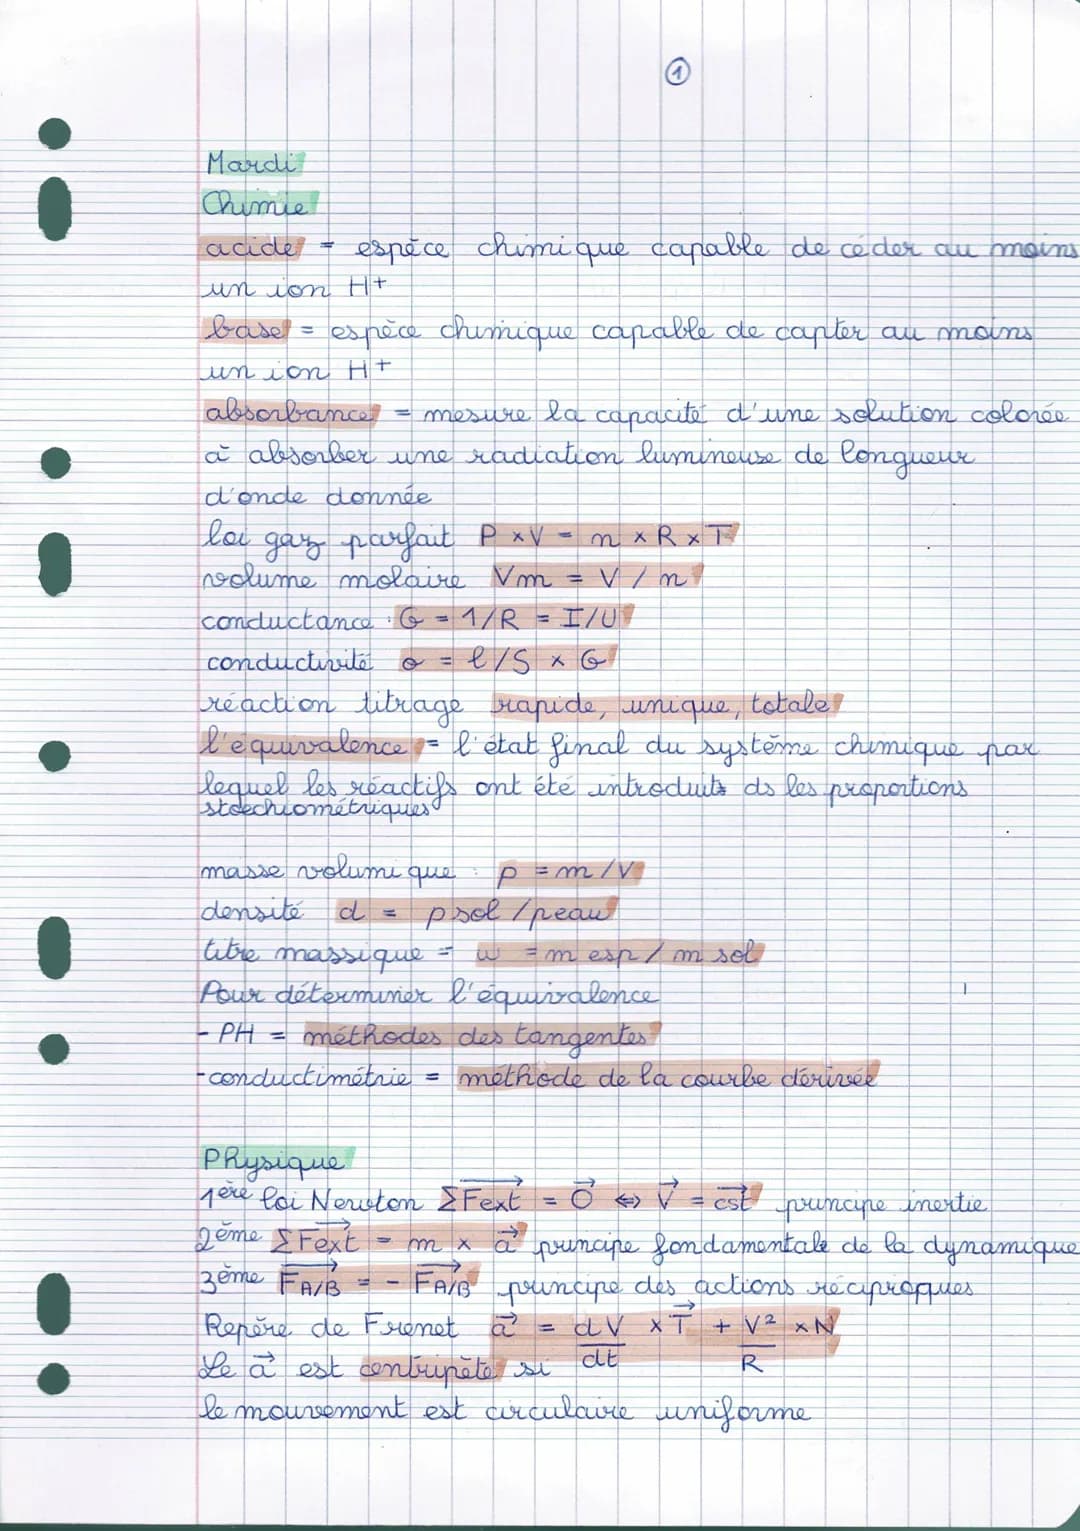 1
Mardi
Chimie
acide = espèce chimique capable de céder au moins
un ion H+
base = espèce chimique capable de capter au moins
un ion H+
absorbance = mesure la capacité d'une solution colorée
à absorber une radiation lumineuse de longueur
d'onde donnée
loi gaz parfait P x V = n x R x T
volume molaire Vm = V / n
conductance : G = 1/R = I/U
conductivité σ = l/S x G
réaction titrage rapide, unique, totale
l'équivalence = l'état final du système chimique par
lequel les réactifs ont été introduits ds les proportions
stoechiométriques
masse volumique : ρ = m/V
densité d = ρ sol / ρeau
titre massique = w = m esp / m sol
Pour déterminer l'équivalence
- PH = méthodes des tangentes
- conductimétrie = méthode de la courbe dérivée
Physique
1ère loi Newton Σ\vec{Fext} = \vec{0} ⇔ \vec{V} = \vec{cst} principe inertie
2ème Σ\vec{Fext} = m x \vec{a} principe fondamentale de la dynamique
3ème \vec{F_{A/B}} = - \vec{F_{A/B}} principe des actions réciproques
Repère de Frenet \vec{a} = \frac{dV}{dt} x \vec{T} + \frac{V²}{R} x N
Le \vec{a} est centripète si
le mouvement est circulaire uniforme